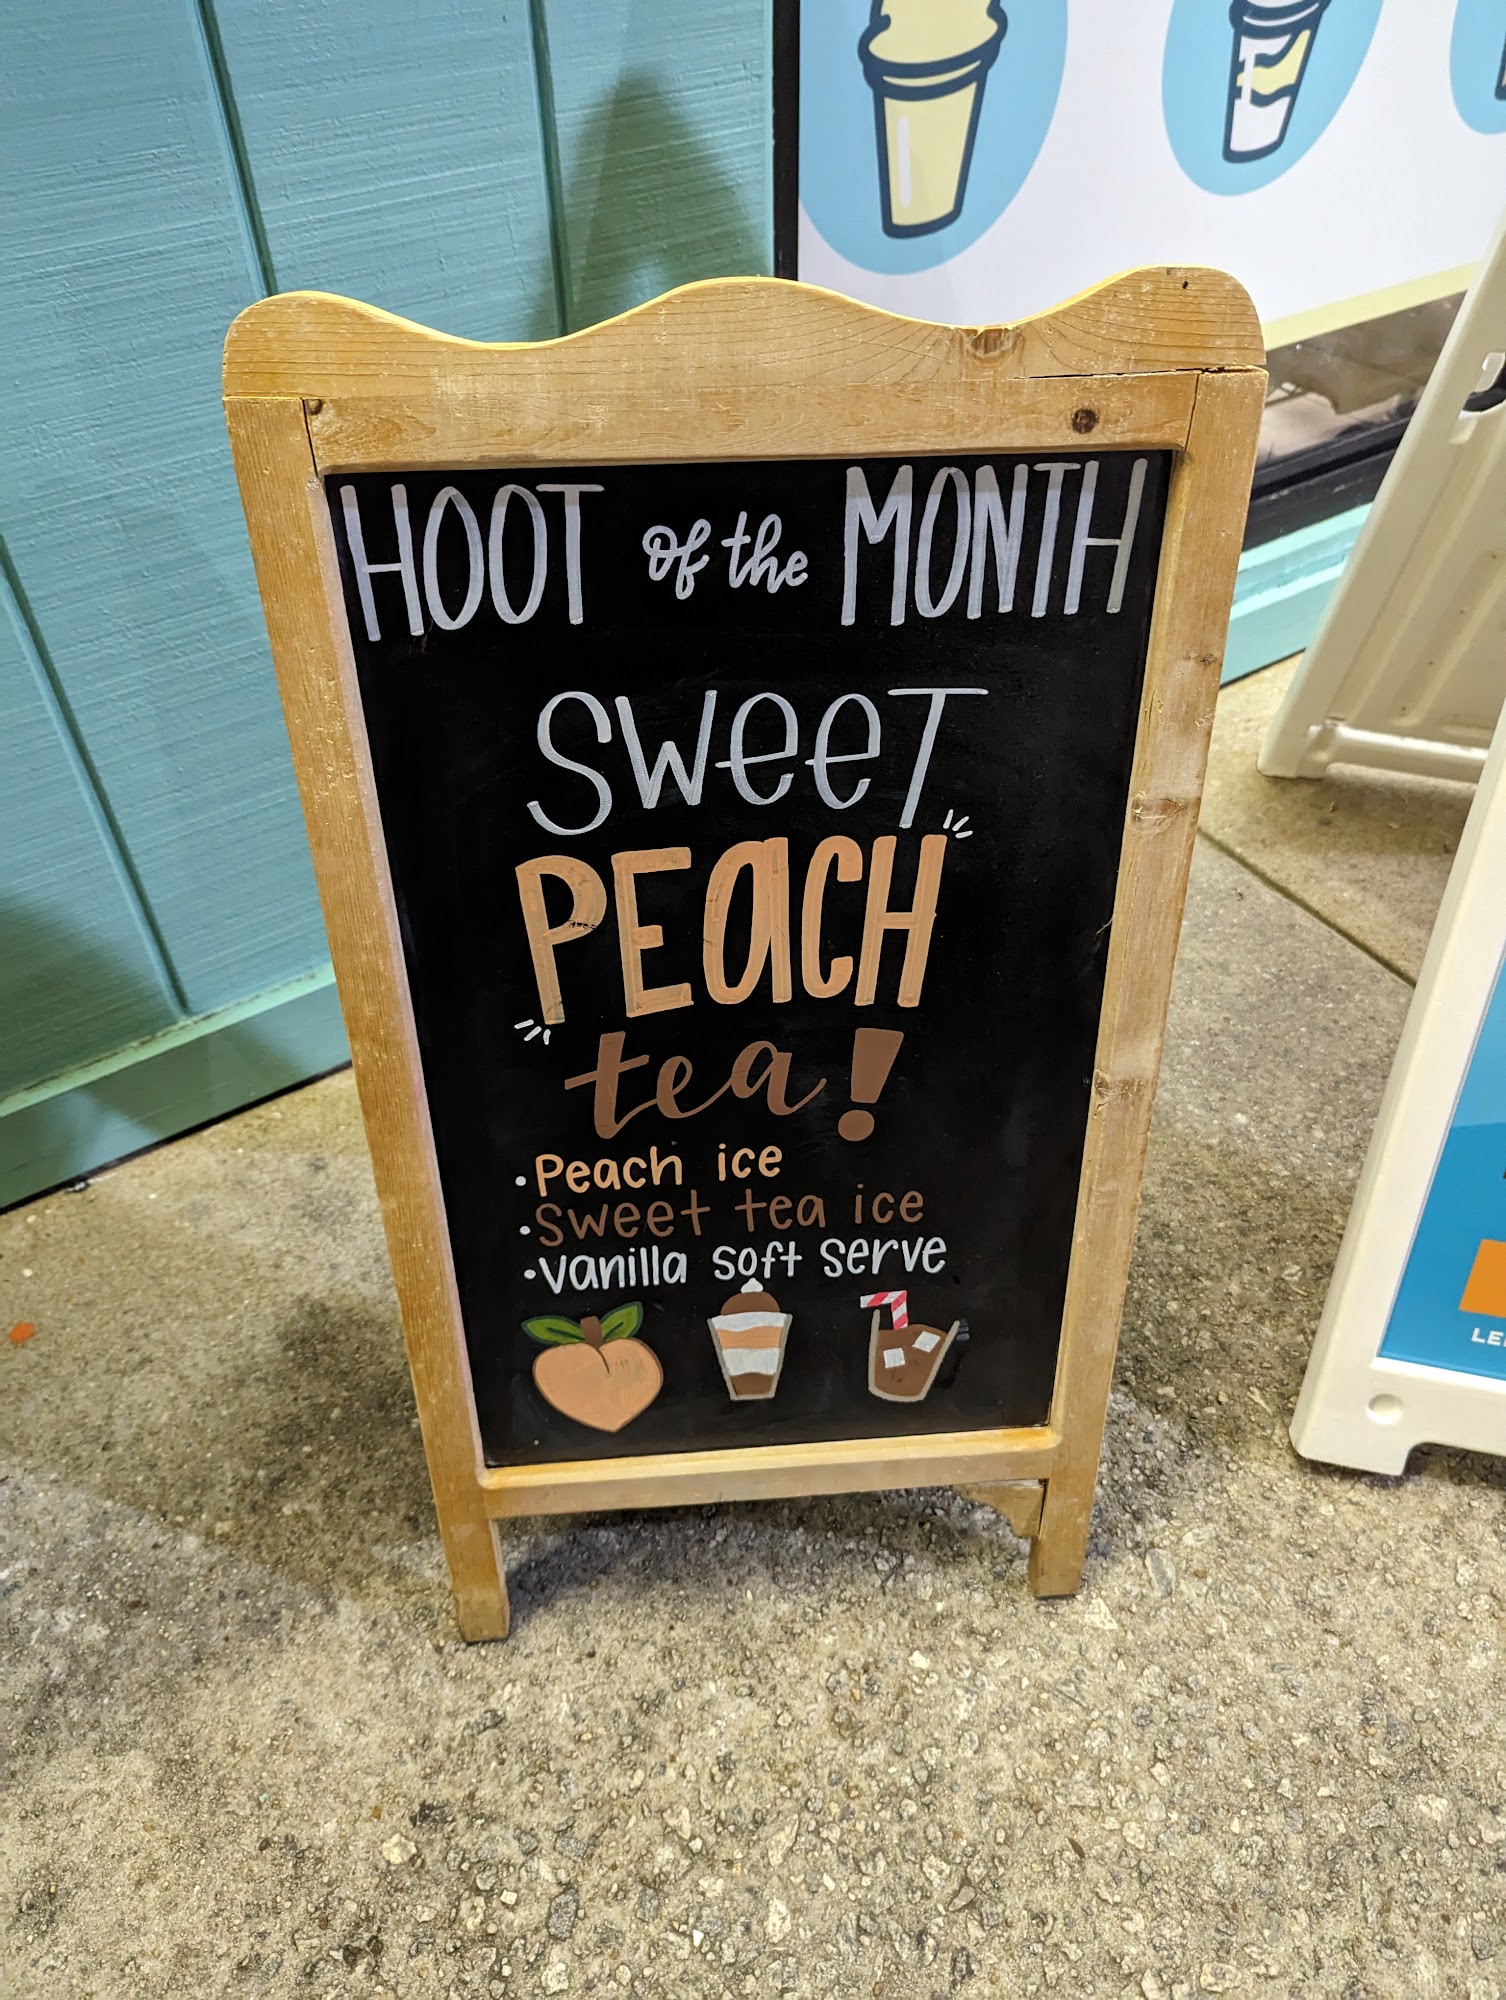 HOOT of the MONTH
SWeeT
PEaCH
tea!
• Peach ice
• Sweet tea ice
• Vanilla soft serve